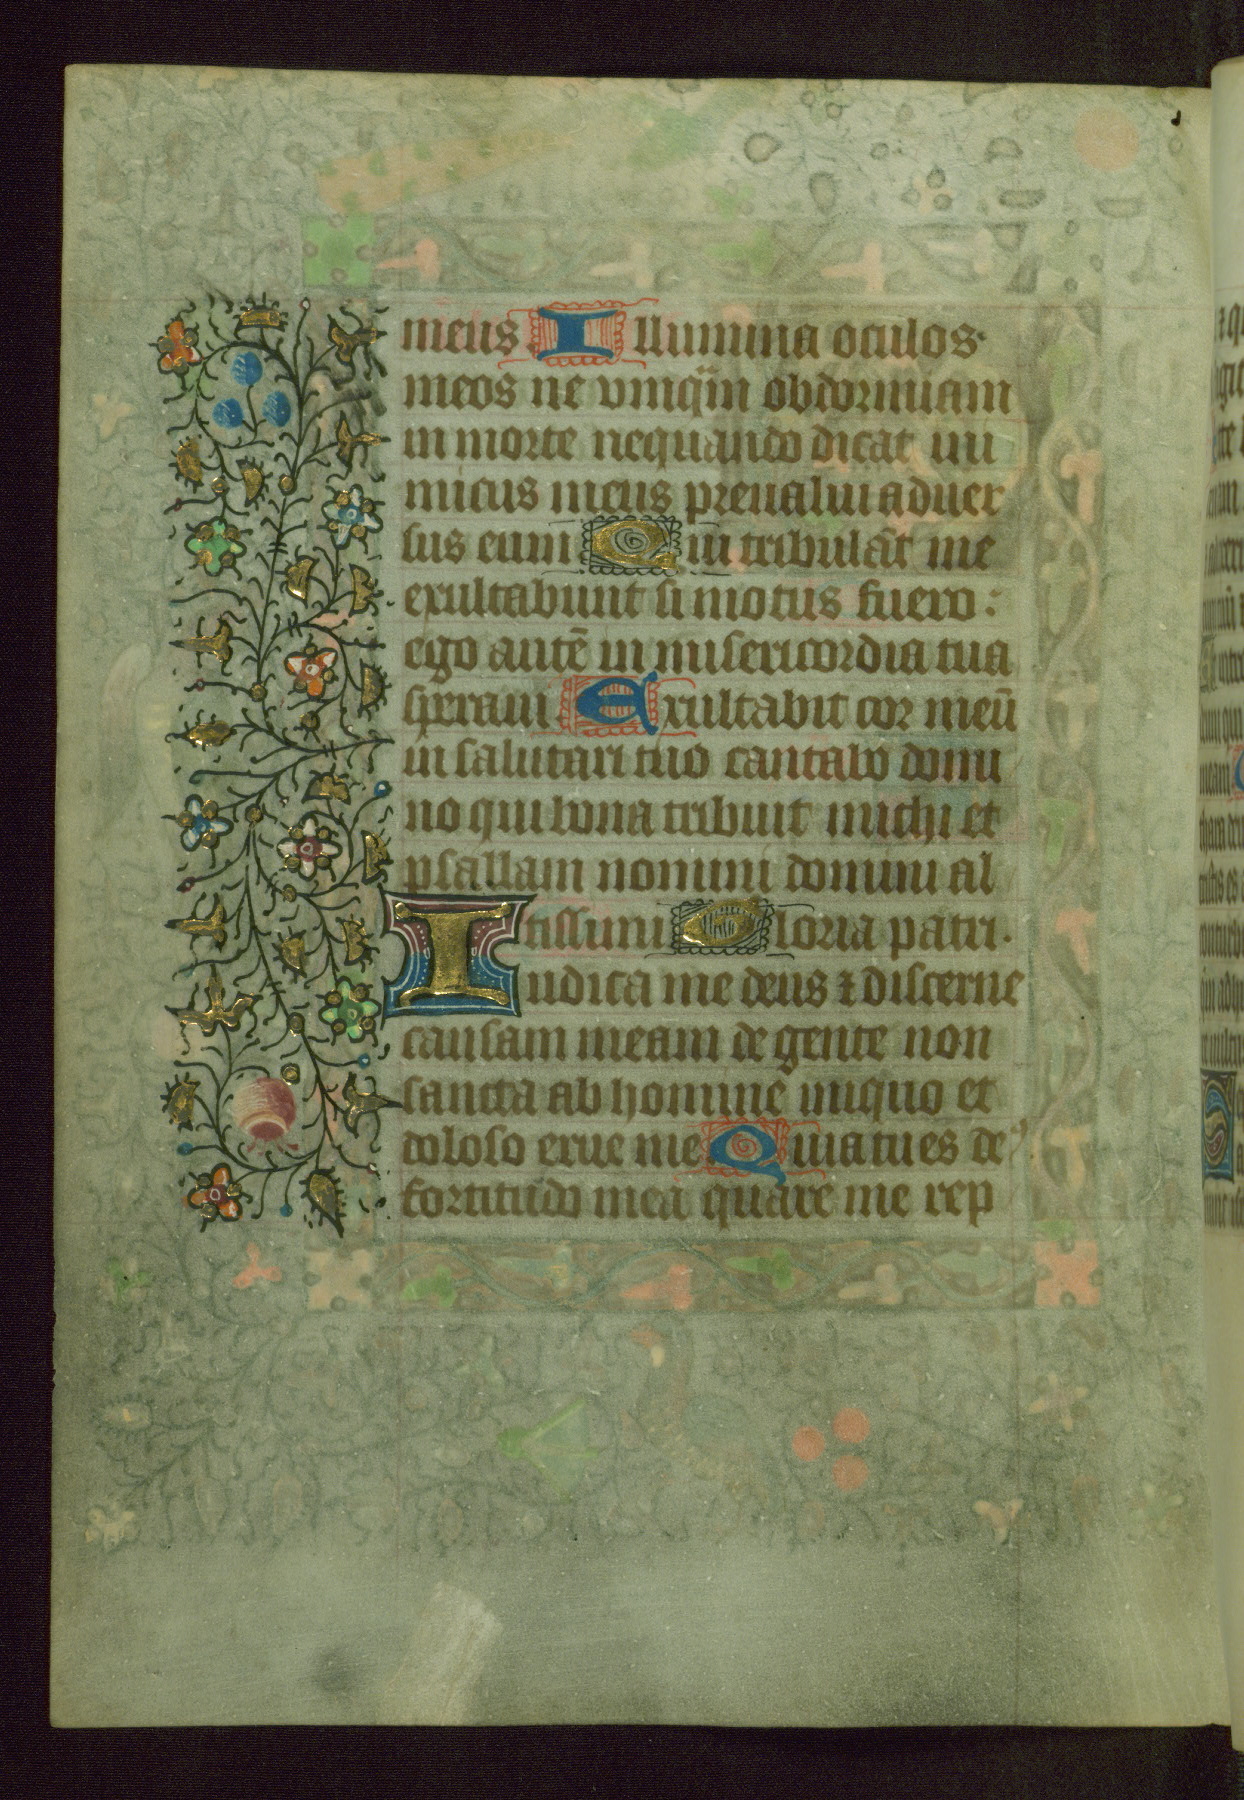 meus Illumina oculos
meos ne vmq̄m obdormiam
in morte nequando dicat ini
micus meus preualui aduer
sus eum Qui tribulāt me
exultabunt si motus fuero :
ego autē in misericordia tua
speraui Exultabit cor meū
in salutari tuo cantabo domi
no qui bona tribuit michi et
psallam nomini domini al
tissimi Gloria patri.
Iudica me deus ⁊ discerne
causam meam de gente non
sancta ab homine iniquo et
doloso erue me Quia tu es deꝰ
fortitudo mea quare me rep